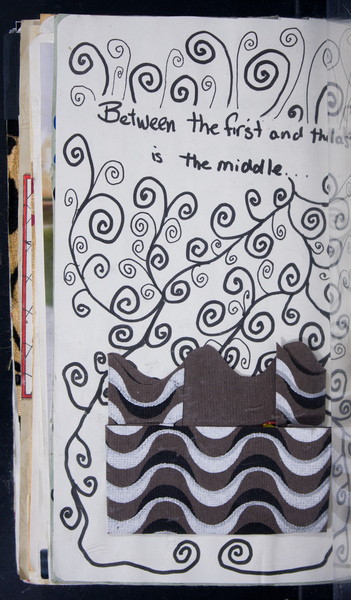 Between the first and the last
is the middle...